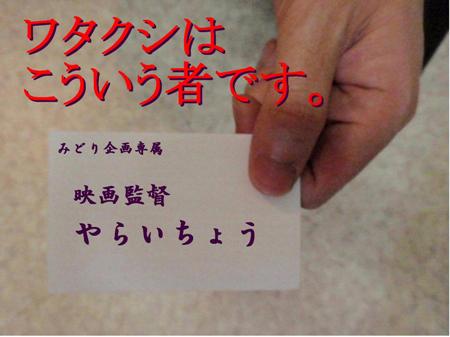 ワタクシは
こういう者です。
みどり企画専属
映画監督
やらいちょう